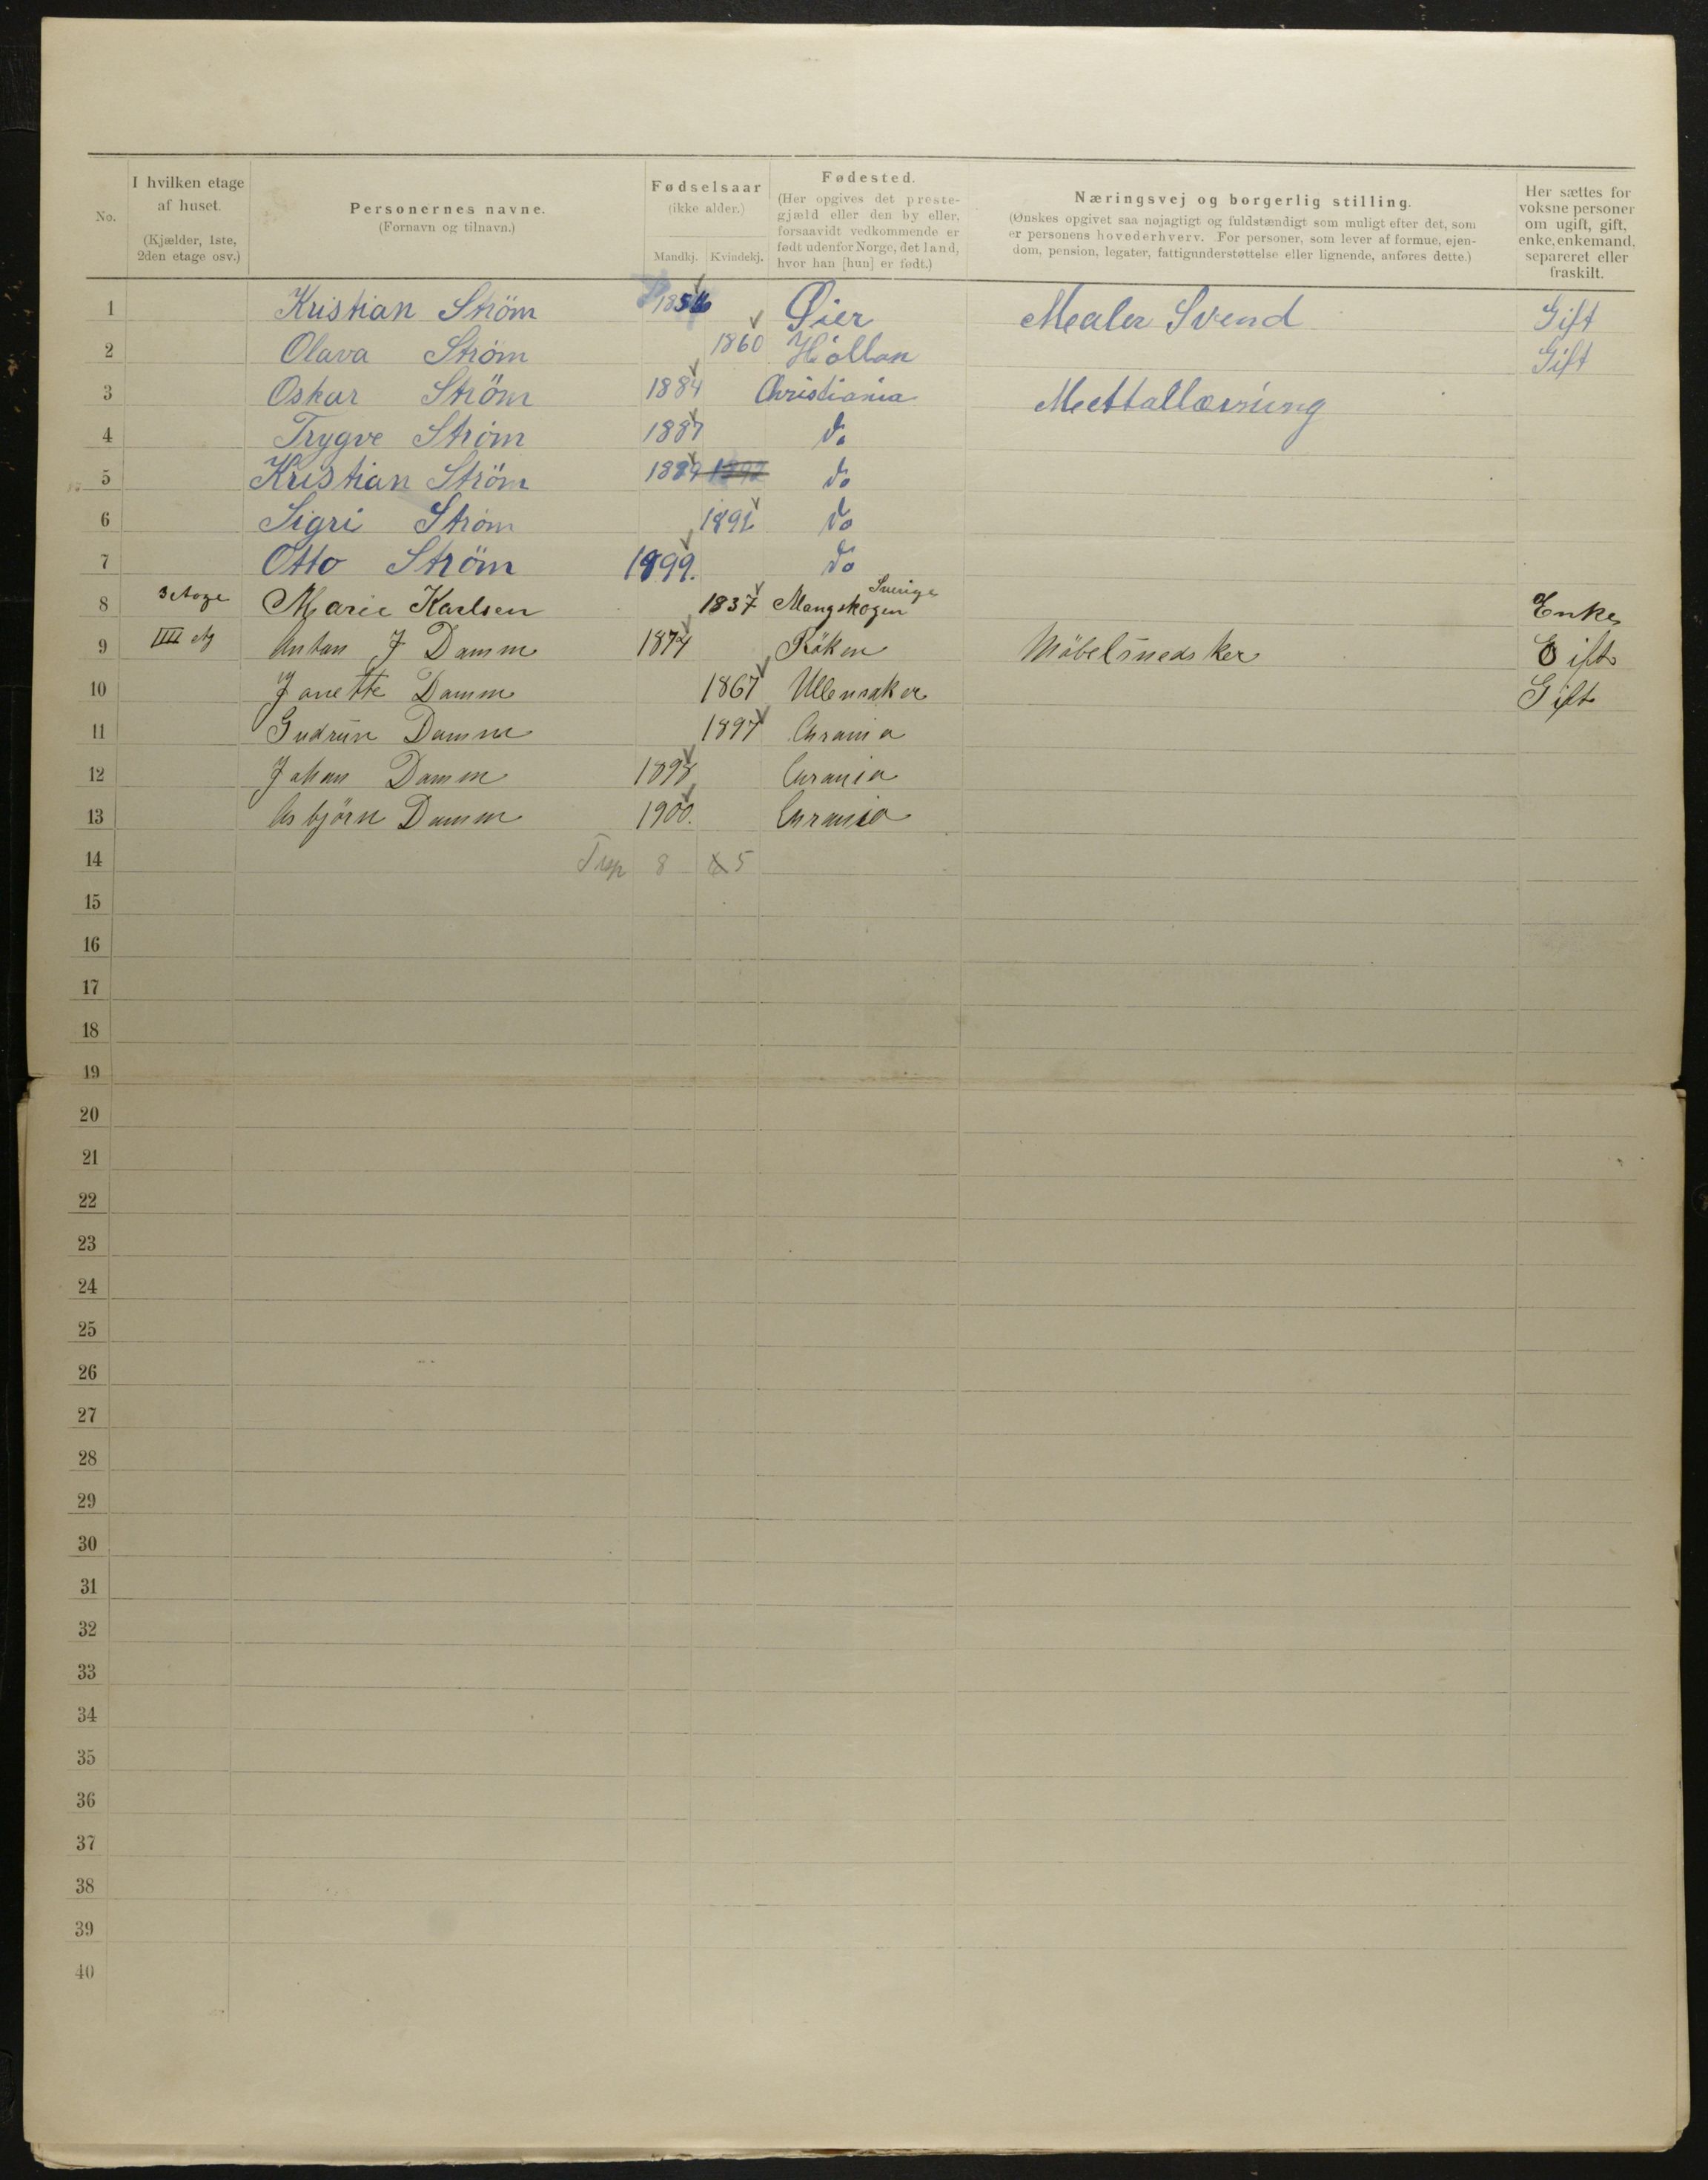 No.
I hvilken etage af huset.
(Kjælder, 1ste, 2den etage osv.)
Personernes navne.
(Fornavn og tilnavn.)
Fødselsaar
(ikke alder.)
Mandkj. Kvindekj.
Fødested.
(Her opgives det prestegjæld eller den by eller, forsaavidt vedkommende er født udenfor Norge, det land, hvor han [hun] er født.)
Næringsvej og borgerlig stilling.
(Ønskes opgivet saa nøjagtigt og fuldstændigt som muligt efter det, som er personens hovederhverv. For personer, som lever af formue, ejendom, pension, legater, fattigunderstøttelse eller lignende, anføres dette.)
Her sættes for voksne personer om ugift, gift, enke, enkemand, separeret eller fraskilt.
1 Kristian Ström 1856 Øier Mealer Svend Gift
2 Olava Ström 1860 Höllan Gift
3 Oskar Ström 1884 Christiania Mettallærning
4 Trygve Ström 1887 do
5 Kristian Ström 1889 1892 do
6 Sigri Ström 1891 do
7 Otto Ström 1899. do
8 3 etage Marie Karlsen 1837 Mangskogen Sverige Enke
9 IIII etg Anton J Damm 1874 Röken Möbelsnedsker Gift
10 Janette Damm 1867 Ullensaker Gift
11 Gudrun Damm 1897 Chrania
12 Johan Damm 1898 Chrania
13 Asbjörn Damm 1900. Chrania
14 8 6 5
15
16
17
18
19
20
21
22
23
24
25
26
27
28
29
30
31
32
33
34
35
36
37
38
39
40